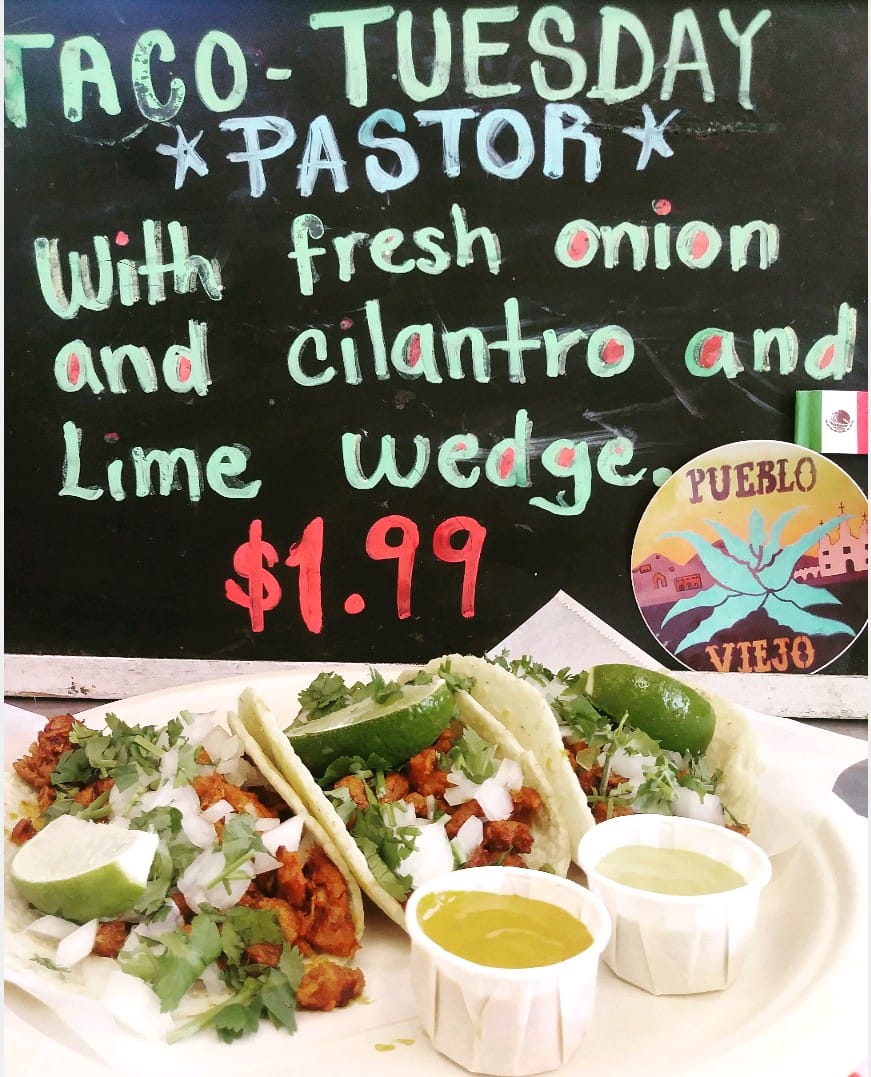 TACO-TUESDAY
*PASTOR*
With fresh onion
and cilantro and
Lime wedge.
$1.99
PUEBLO
VIEJO